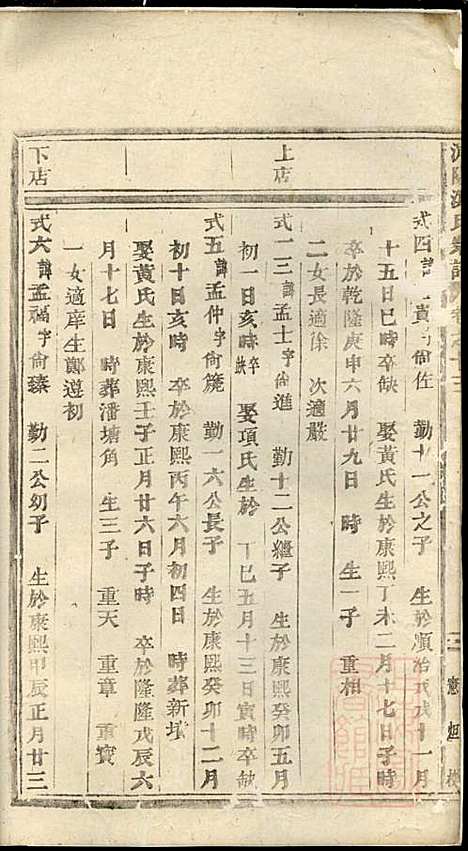 氏宗譜
上店
下店
式四諱孟 尙佐 勤十一公之子 生於順治戊戌十一月
十五日巳時卒缺 娶黃氏生於康熙丁未二月十七日子時
卒於乾隆庚申六月廿九日 時 生一子 重相
二女長適徐 次適嚴
式一三諱孟士字尙進 勤十二公繼子 生於康熙癸卯五月
初一日亥時卒缺 娶項氏生於 丁巳五月十三日寅時卒缺
式五諱孟仲字尙篪 勤一六公長子 生於康熙癸卯十二月
初十日亥時 卒於康熙丙午六月初四日 時葬新墳
娶黃氏生於康熙壬子正月廿六日子時 卒於隆隆戊辰六
月十七日 時葬潘塘角 生三子 重天 重章 重寶
一女適庠生鄭遵初
式六諱孟福字尙臻 勤二公幼子 生於康熙甲辰正月廿三